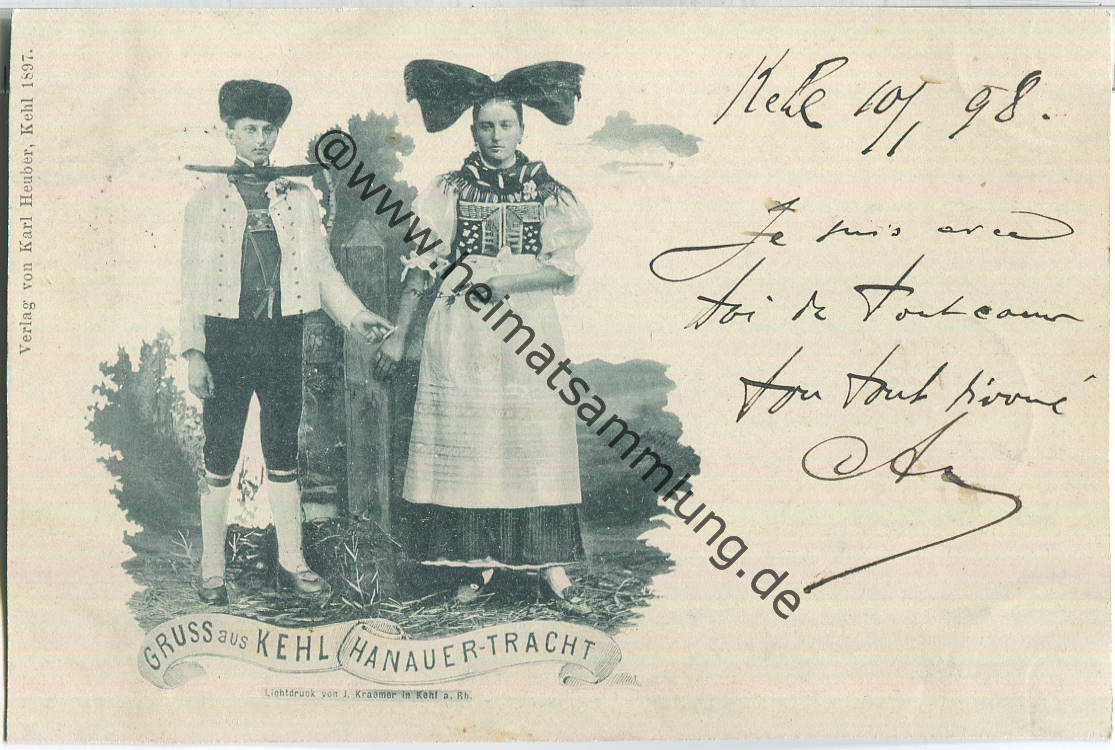 Verlag von Karl Heuber, Kehl 1897.
Kehl 10/1 98.
Je suis avec
toi de tout coeur
ton tout dévoué
@www.heimatsammlung.de
GRUSS aus KEHL HANAUER-TRACHT
Lichtdruck von J. Kraemer in Kehl a. Rh.